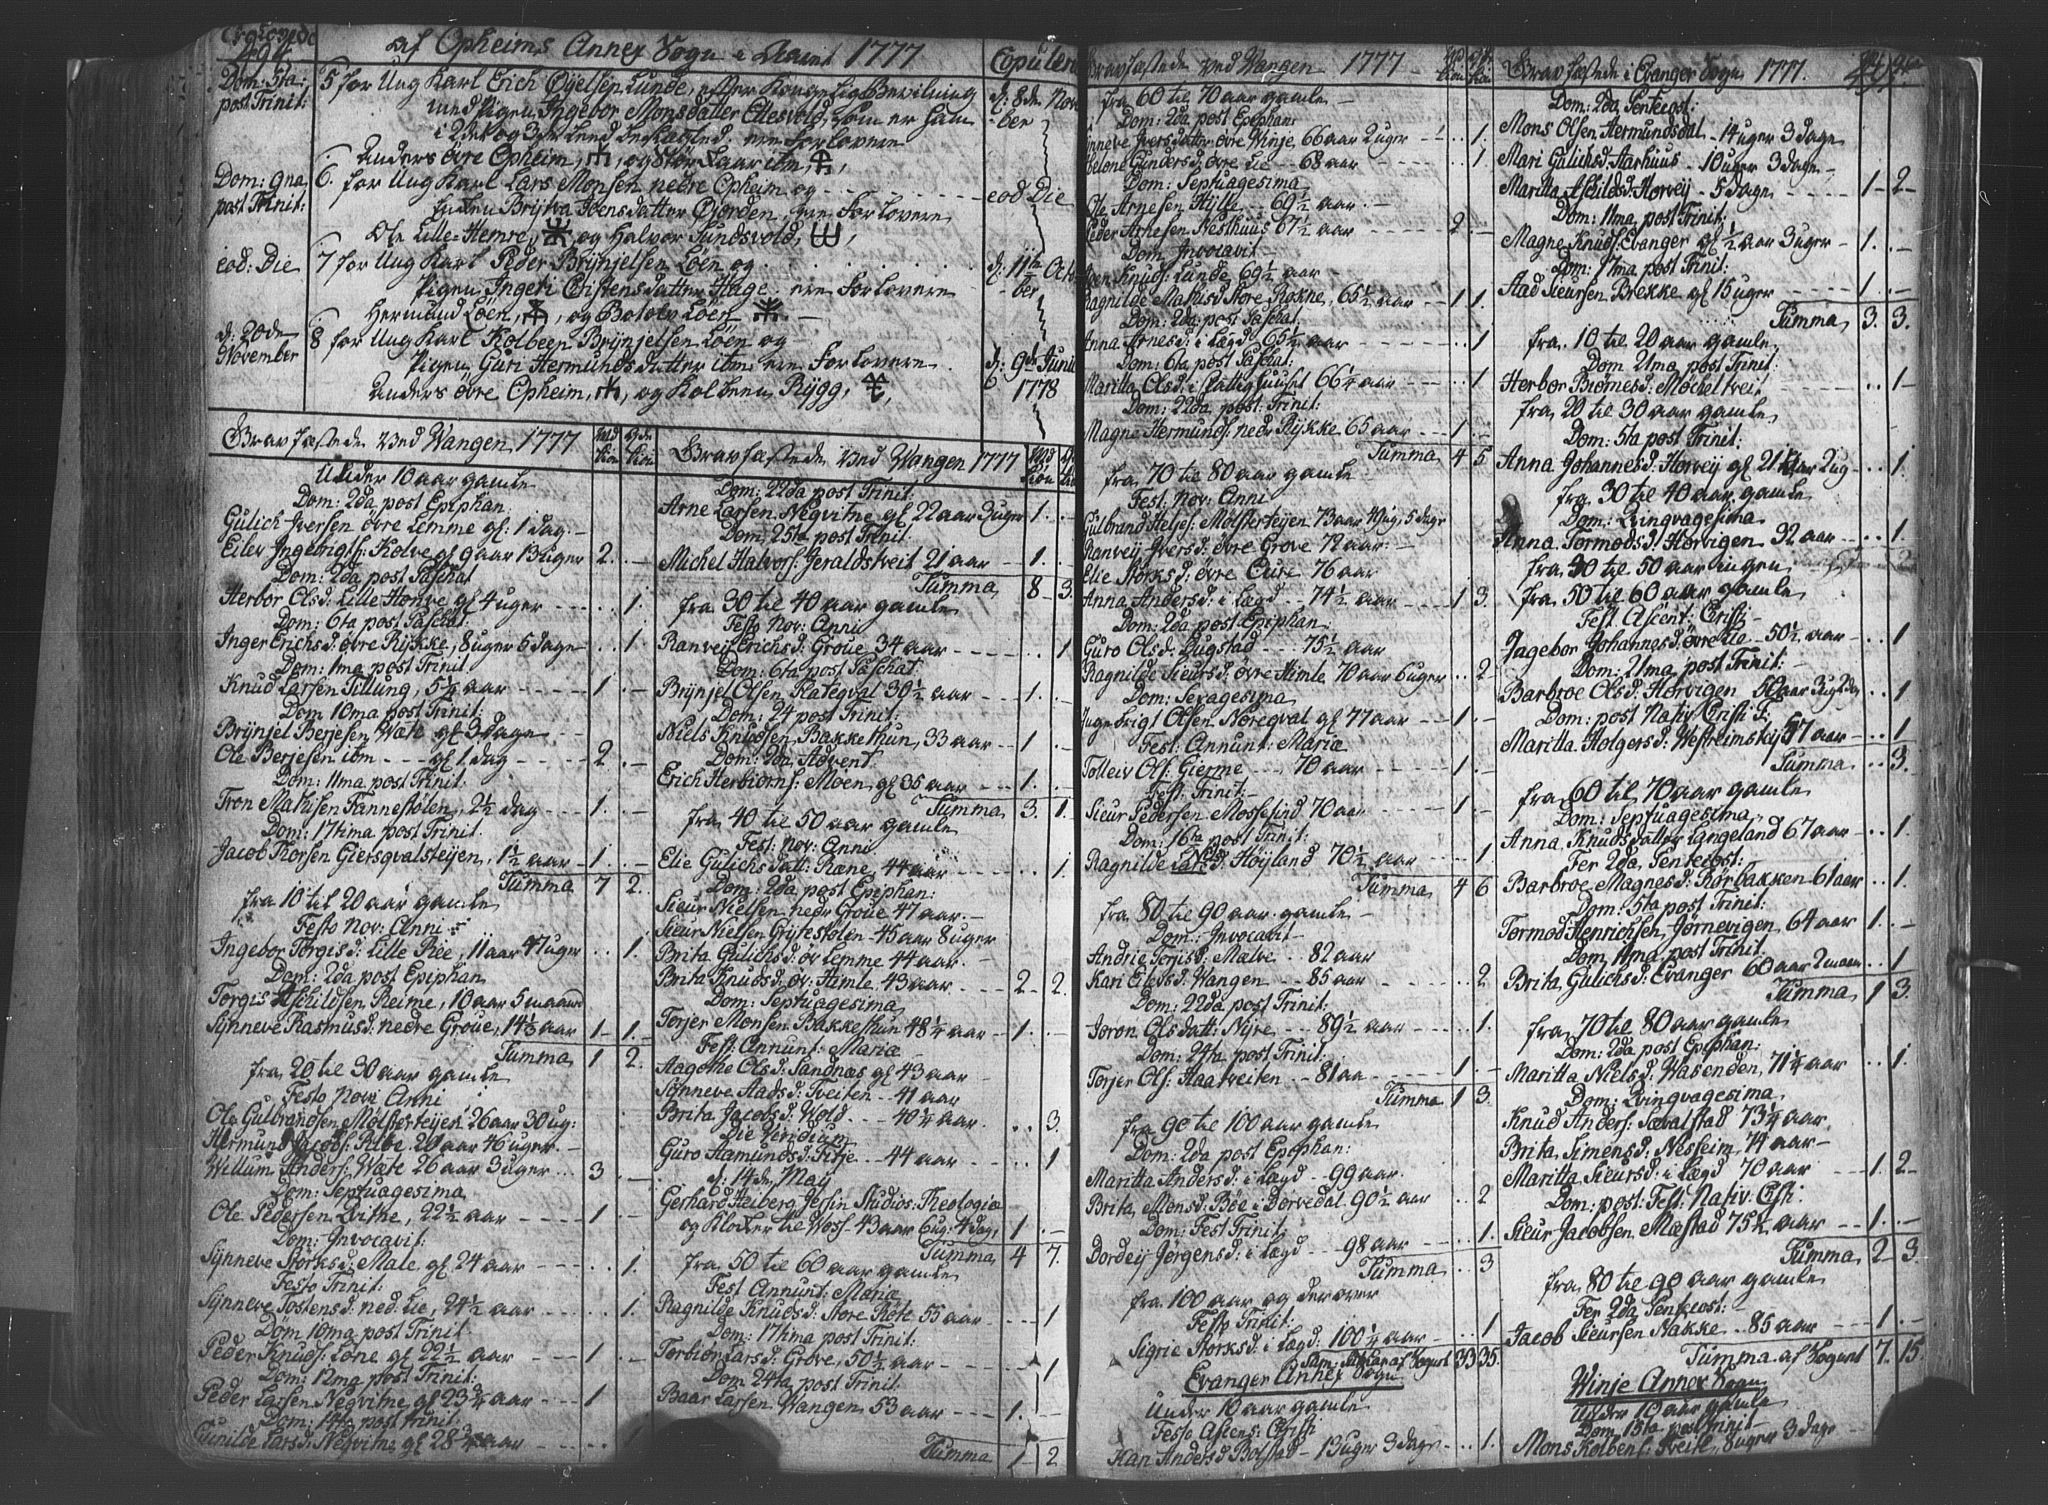 Af Opheims Annex Sogn i Aaret 1777
Copuleri
Dom: 5ta
post Trinit:
5 for Ung Karl Erich Øyelsen Lunde, efter Kongelig Bevilning
med Pigen Ingebor Monsdatter, som er ham
i 2det og 3die Leed beslægted. ere Forlovere
Anders øvre Opheim, og Stor
d: 8de Novem
ber
Dom: 9na
post Trinit:
6. for Ung Karl Lars Monsen nedre Opheim og
Enken Brijtva Joensdatter Gjorden, ere Forlovere
Ole Lille-Hemre, og Halvor Sundsvold,
eod Die
eod: Die
7 for Ung Karl Peder Brynjelsen Løen og
Pigen Ingeri Cristensdatter Hage. ere Forlovere
Hermund Løen, og Bottolv Løen
d: 11te Octo
ber
d: 20de
November
8 for Ung Karl Kolbeen Brynjelsen Løen og
Pigen Guri Hermundsdatter ibm ere Forlovere
Anders øvre Opheim, og Kolbeen Rygg,
d: 9de Junii
1778
Gravfæstede ved Wangen 1777
Under 10 aar gamle
Dom: 2da post Epiphan:
Gulich Iversen øvre Lemme gl: 1 dag
Eilev Ingebrigts: Kolve gl 9 aar 13 uger 2.
Dom: 2da post Paschat
Herbor Olsd: Lille Hønve gl 4 uger 1.
Dom: 6ta post Paschat:
Inger Erichsd: øvre Rykke, 8 uger 5 dage 1
Dom: 1ma post Trinit:
Knud Larsen Tillung, 5¼ aar 1.
Dom 10ma post Trinit:
Brynjel Berjesen Wæte gl 3 dage
Ole Berjesen ibm gl 1 dag 2.
Dom: 11ma post Trinit:
Tron Mathisen Fannestølen, 2½ dag 1.
Dom: 17tima post Trinit:
Jacob Thorsen Giersqvalsteijen, 1½ aar 1.
Summa 7 2.
fra 10 til 20 aar gamle
Festo Nov: Anni
Ingebor Torgisd: Lille Ree, 11 aar 47 uger 1.
Dom: 2da post Epiphan
Torgis Askildsen Reime, 10 aar 5 maan
Synneve Rasmusd: nedre Groue, 14½ aar 1 1.
Summa 1 2.
fra 20 til 30 aar gamle
Festo Nov: Anni
Ole Gulbrandsen Mølsterteijen 26 aar 30 ug:
Hermund Jacobs: Rebe 20 aar 46 uger
Willum Anders: Wæte 26 aar 3 uger 3
Dom: Septuagesima
Ole Pedersen Qvitne, 22½ aar 1
Dom: Invocavit:
Synneve Størksd: Male gl 24 aar 1.
Festo Trinit:
Synneve Tostensd: ned: Lie, 24½ aar 1.
Dom 10ma post Trinit:
Peder Knuds: Løne gl 22½ aar 1.
Dom: 12ma post Trinit:
Peder Larsen Negvitne gl 23¾ aar 1
Dom: 14ta post Trinit:
Gunilde Larsd: Negvitne gl 28 aar
Gravfæstede Ved Wangen 1777
Dom: 22da post Trinit:
Arne Larsen Negvitne gl 22 aar 3 uger 1.
Dom: 25ta post Trinit:
Michel Halvors: Jeraldstveit 21 aar 1.
Summa 8 3.
fra 30 til 40 aar gamle
Festo Nov: Anni
Ranveij Erichsd: Groue, 34 aar 1
Dom: 6ta post Paschat
Brynjel Olsen Rateqval 30½ aar 1.
Dom: 24 post Trinit:
Niels Knudsen Bakkethun, 33 aar 1
Dom: 2da Advent
Erich Herbiørns: Moen, gl 35 aar 1.
Summa 3. 1.
fra 40 til 50 aar gamle
Fest: nov: Anni
Elie Gulichsdatt: Ræne 44 aar 1.
Dom: 2da post Epiphan:
Sieur Nielsen nedr Groue 47 aar.
Sieur Nielsen Grytestølen 45 aar 8 uger
Brita Gulichsd: øv Lemme 44 aar.
Brita Knudsd: øv: Himle 43 aar 2 2.
Dom: Septuagesima
Torjer Monsen Bakkethun 48¼ aar 1.
Fest: Annunt: Mariæ
Aagothe Olsd: Sandnæs gl 43 aar
Synneve Aadsd: Tveiten 41 aar
Brita Jacobsd: Wold 40¼ aar 3.
Die Viridium
Guro Aamundsd: Fitje 44 aar 1
d: 14de May
Gerhard Heiberg Jersin Studios: Theologiæ
og Klocker til Woss 43 aar 6 ug: 4 dag: 1
Summa 4 7.
fra 50 til 60 aar gamle
Fest Annunt: Mariæ
Ragnilde Knudsd: Store Røte 55 aar 1
Dom: 17tima post Trinit:
Torbior Larsd: Grove, 50½ aar 1
Dom 24ta post Trinit:
Baar Larsen Wangen 53 aar 1.
Summa 1 2
Gravfæstede ved Wangen 1777
fra 60 til 70 aar gamle
Dom: 2da post Epiphan:
Synneve Iversdatter øvre Winje, 66 aar 2 uger 1.
Helone Gundersd: øvre Lie 68 aar 1
Dom: Septuagesima
Ole Arnesen Hylle 69½ aar.
Peder Arnesen Nesthuus 67½ aar 2.
Dom: Invocavit
Joen Knuds: Lunde 69½ aar
Ragnilde Mathisd Store Rokne, 65½ aar 1 1.
Dom: 2da post Paschat:
Anna Arnesd: i Lægd 65½ aar 1
Dom: 6ta post Paschat:
Maritta Olsd: i Fattighuuset 66¼ aar 1
Dom: 22da post: Trinit:
Magne Hermunds: nedr Rykke 65 aar 1.
Summa 4 5
fra 70 til 80 aar gamle
Fest: Nov: Anni
Gulbrand Helges: Mølsterteijen 73 aar 40 ug: 5 dage
Ranveij Iversd: øvre Grove 72 aar:
Elie Størksd: øvre Qure 76 aar
Anna Andersd: i Lægd 74½ aar 1 3.
Dom: 2da post Epiphan:
Guro Olsd: Dugstad 75½ aar
Ragnilde Sieursd: øvre Himle 70 aar 6 uger 2
Dom: Sexagesima
Ingebrigt Olsen Noreqval gl 77 aar 1.
Fest: Annunt: Mariæ
Tolleiv Ols: Gierme 70 aar 1.
Fest: Trinit:
Sieur Pedersen Mossefind 70 aar 1.
Dom: 16ta post Trinit:
Ragnilde Larsd: Høijland 70½ aar 1
Summa 4 6
fra 80 til 90 aar gamle
Dom: Invocavit
Andrie Torjisd: Mælve 82 aar
Kari Elevsd: Wangen 85 aar 2
Dom: 22da post Trinit:
Joron Olsdatt: Nyre 89½ aar 1.
Dom: 24ta post Trinit:
Torjer Ols: Haatveiten 81 aa 1
Summa 1 3.
fra 90 til 100 aar gamle
Dom: 2da post Epiphan:
Maritta Andersd: i Lægd 99 aar.
Brita Monsd: Bøe i Dorvedal 90½ aar 2
Dom: Fest Trinit:
Dordeij Jørgensd: i Lægd 98 aar 1.
Summa 3
fra 100 aar og derover
Festo Trinit:
Sigrie Størksd: i Lægd: 100¼ aar 1
af Sognet 33 35.
Evanger Annex Sogn
Under 10 aar gamle
Festo Ascens: Cristi
Kari Andersd Bolstad 13 uger 3 dage 1.
Gravfæstede i Evanger Sogn 1777
Dom: 2da Pentecost:
Mons Olsen Hermundsdal 14 uger 3 dage
Mari Gulichsd: Aarhuus 10 uger 3 dage
Maritta Askildsd: Horvey 5 dage 1 2
Dom: 11ma post Trinit:
Magne Knuds: Evanger gl ½ aar 3 uger 1.
Dom: 17ma post Trinit:
Aad Sieursen Brekke gl 15 uger 1.
Summa 3. 3.
fra 10 til 20 aar gamle
Dom 21ma post Trinit:
Herbor Biørnesd: Møcheltveit 1
fra 20 til 30 aar gamle
Dom: 5ta post Trinit:
Anna Johannesd: Horveij gl 21 aar 2 ug 1.
fra 30 til 40 aar gamle
Dom: Qvinqvagesima
Anna Tormodsd: Horvigen 32 aar 1.
fra 30 til 50 aar ingen
fra 50 til 60 aar gamle
Fest Ascent: Cristi
Ingebor Johannesd: øvre Lie 50½ aar 1
Dom: 21ma post Trinit:
Barbroe Olsd: Horvigen 50 aar 3 ug 2 dg 1
Dom: post Nativ: Cristi F:
Maritta Holgersd: Westreimskij 57 aar 1
Summa 3.
fra 60 til 70 aar gamle
Dom: Septuagesima
Anna Knudsdatter Langeland 67 aar 1.
Fer 2da Pentecost:
Barbroe Magnesd: Rørbakken 61 aar 1.
Dom: 5ta post Trinit:
Tormod Henrichsen Jørnevigen 64 aar 1.
Dom 11ma post Trinit:
Brita Gulichsd: Evanger 60 aar 2 maan 1
Summa 1 3.
fra 70 til 80 aar gamle
Dom: 2da post Epiphan:
Maritta Nielsd: Wasenden, 71¼ aar 1.
Dom: Qvinqvagesima
Knud Anders: Sævalstad 73¼ aar
Brita Simensd: Nesheim 74 aar
Maritta Sieursd: i Lægd 70 aar 1. 2
Dom: post: Fest: Nativ: Cristi:
Sieur Jacobsen Mæstad 75½ aar 1.
Summa 2 3.
fra 80 til 90 aar gamle
Fer 2da Pentecost:
Jacob Sieursen Nakke 85 aar 1.
Summa af Sognet 7. 15.
Winje Annex Sogn
Under 10 aar gamle
Dom 13ta post Trinit
Mons Kolbens: Tveite, 8 uger 3 dage